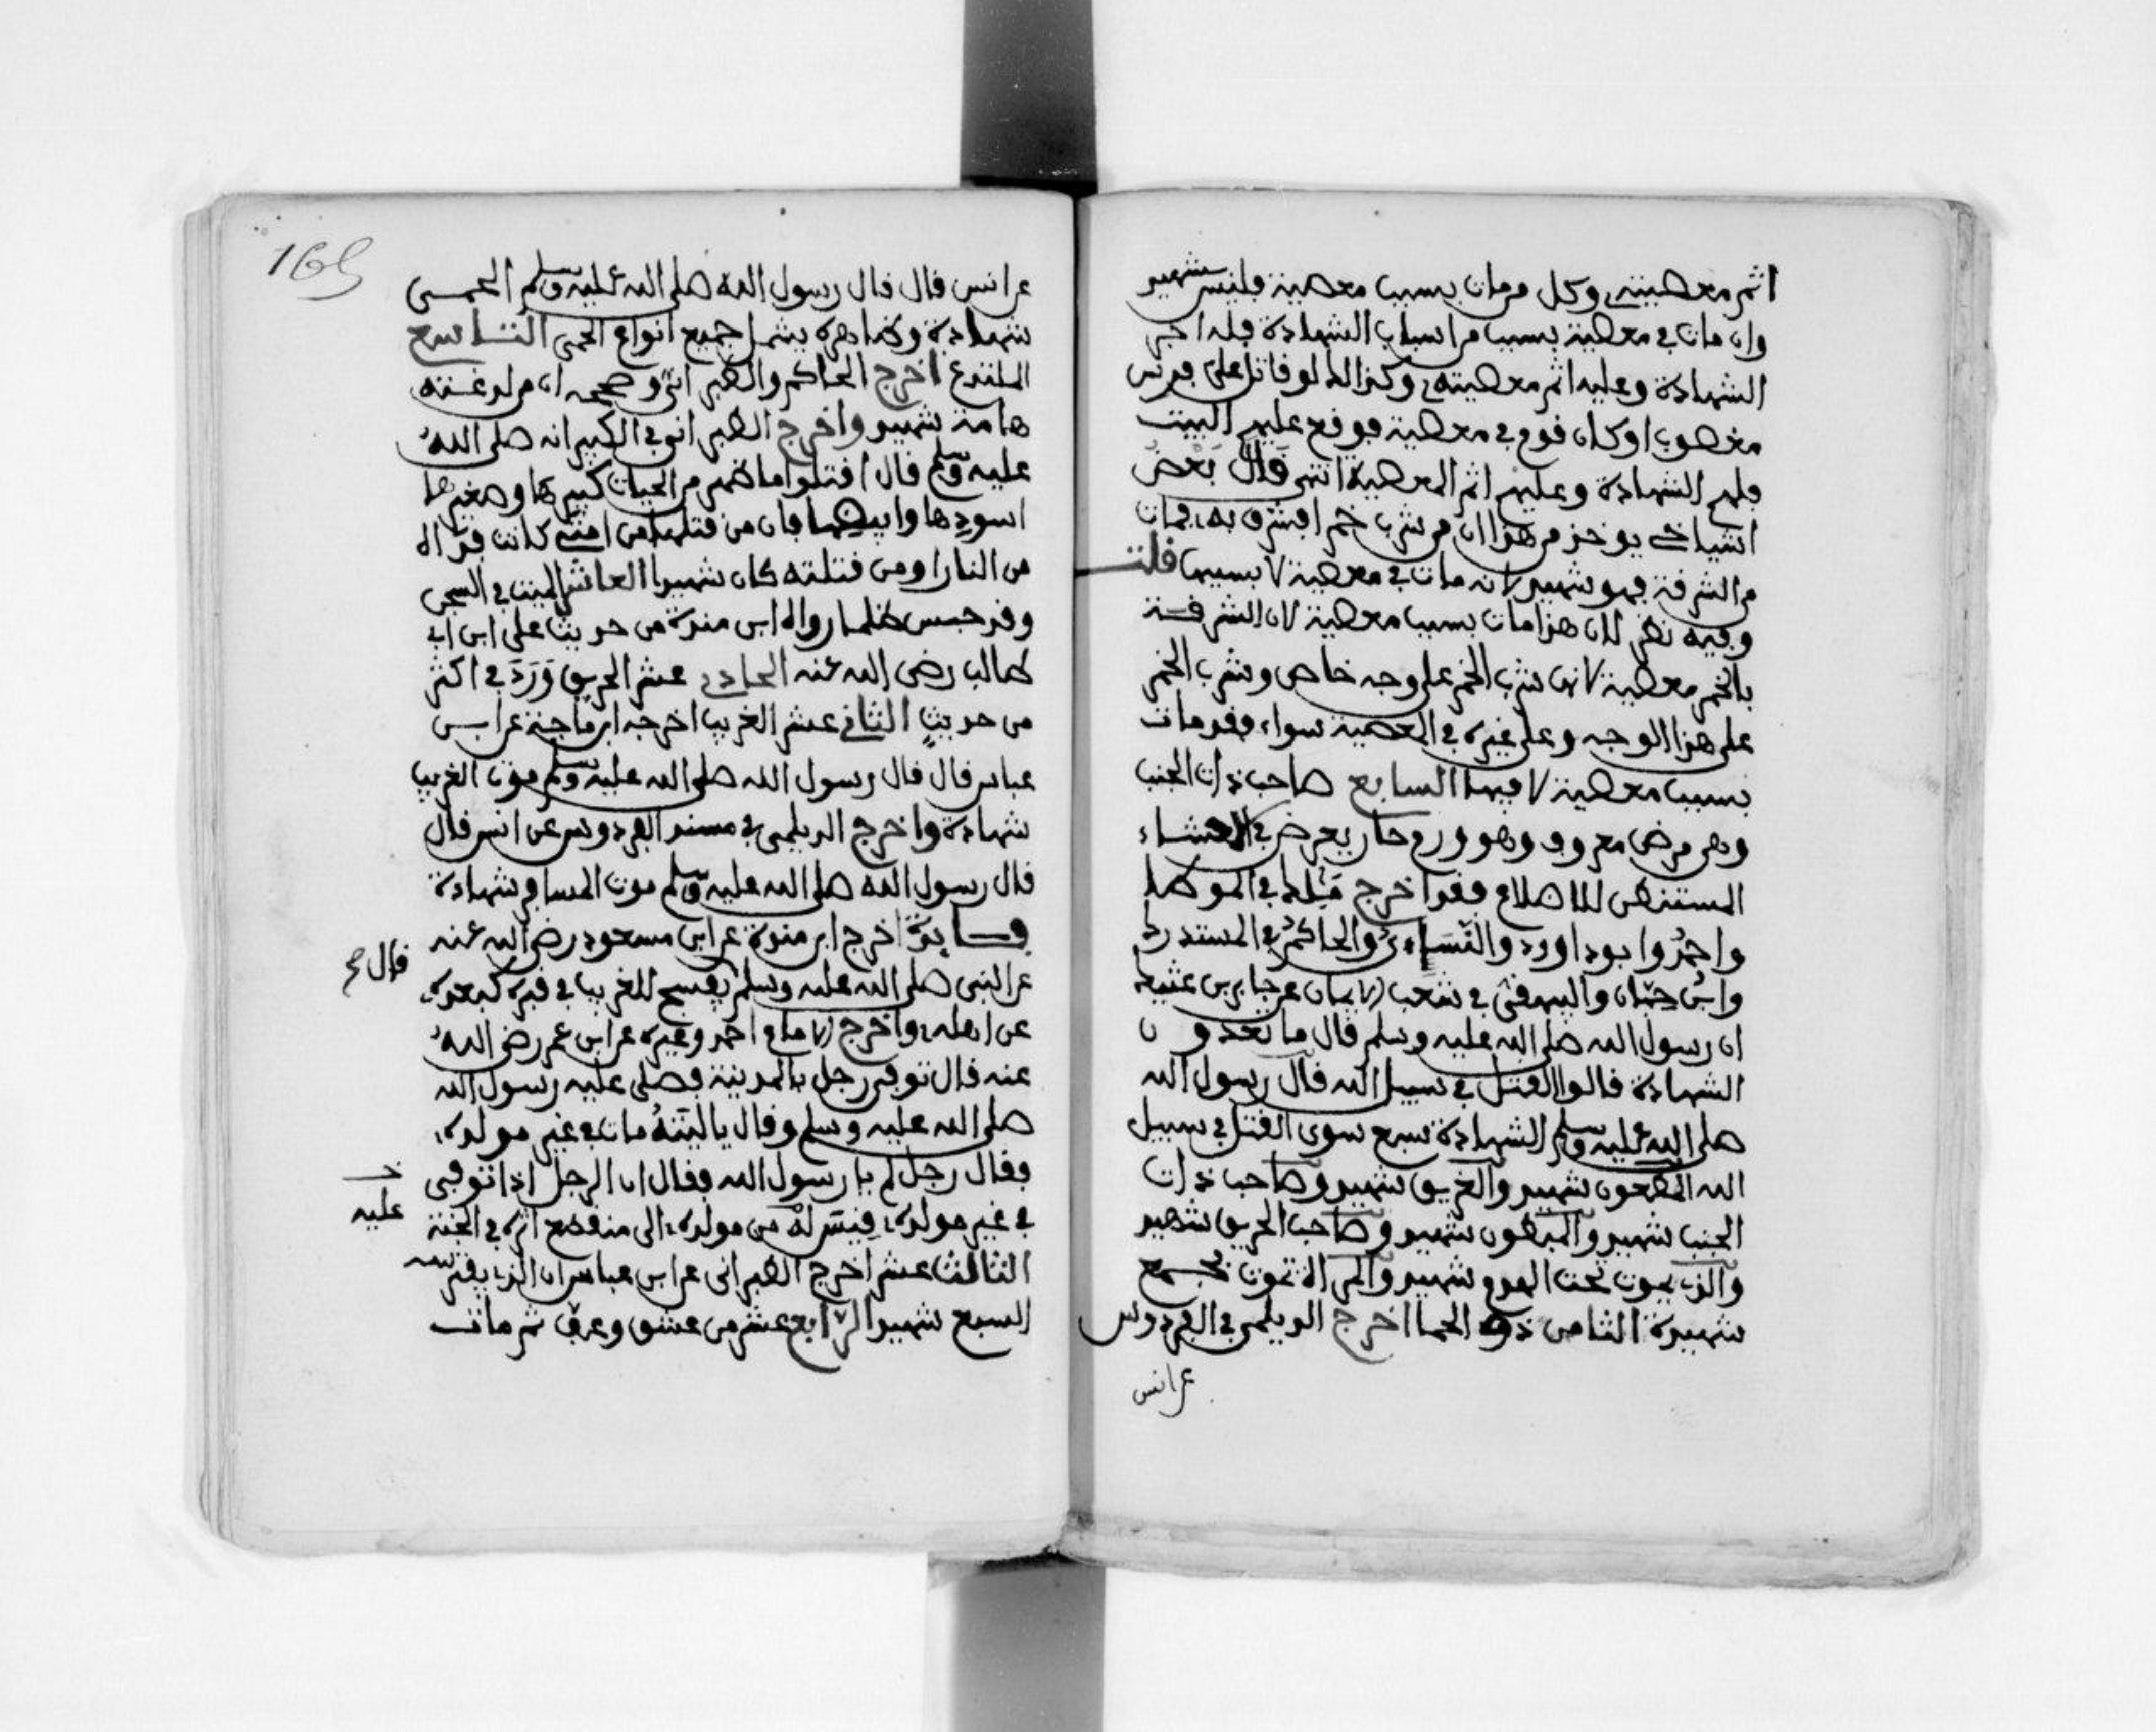 اثم معصيته وكل من مات بسبب معصية فليس بشهيد
وان مات في معصية بسبب من اسباب الشهادة فله اجر
الشهادة وعليه اثم معصيته وكذالك لو قاتل على فرس
مغصوب او كان قوم في معصية فوقع عليهم البيت
فلهم الشهادة وعليهم اثم المعصية انتهى قال بَعْضُ
اشياخي يوخذ من هذا ان من شرب خمرا فشرق به فمات
من الشرقة فهو شهيد لانه مات في معصية لا بسببها قلت
وفيه نظر لان هذا مات بسبب معصية لان الشرقة
بالخمر معصية لانها شرب الخمر على وجه خاص وشرب الخمر
على هذا الوجه وعلى غيره في المعصية سواء فقد مات
بسبب معصية لا فيها السابع صاحب ذات الجنب
وهي مرض معروف وهو ورم حار يعرض في الغشاء
المستبطن للاضلاع فقد اخرج مَٰلِك في الموطا
واحمدُ وابو داوود والنَّسَاءىُ والحاكمُ في المستدرك
وابنُ حِبّان والبيهقىّ في شعب الايمان عن جابر بن عتيك
ان رسول الله صلى الله عليه وسلم قال ما تعدون
الشهادة قالوا القتل في سبيل الله قال رسول الله
صلى الله عليه وسلم الشهادة سبع سوى القتل في سبيل
الله المطعون شهيد والغريق شهيد وصاحب ذات
الجنب شهيد والمبطون شهيد وصاحب الحريق شهيد
والذي يموت تحت الهدم شهيد والمراة تموت بجمع
شهيدة الثامن ذو الحما اخرج الديلمي في الفردوس
عن انس
165
عن انس قال قال رسول الله صلى الله عليه وسلم الحمى
شهادة وظاهره يشمل جميع انواع الحمى التاسع
الملدوغ اخرج الحاكم والطبراني وصححه ان من لدغته
هامة شهيد واخرج الطبراني في الكبير انه صلى الله
عليه وسلم قال اقتلوا ما ظهر من الحيات كبيرها وصغيرها
اسودها وابيضها فان من قتلها من امتي كانت فداه
من النار ومن قتلته كان شهيدا العاشر الميت في السجن
وقد حبس ظلما رواه ابن مندة من حديث على ابن ابي
طالب رضى الله عنه الحادي عشر الحريق وَرَدَ في اكثر
من حديثٍ الثاني عشر الغريب اخرجه ابن ماجة عن ابن
عباس قال قال رسول الله صلى الله عليه وسلم موت الغريب
شهادة واخرج الديلمي في مسند الفردوس عن انس قال
قال رسول الله صلى الله عليه وسلم موت المسافر شهادة
فايدة اخرج ابن مندة عن ابن مسعود رضى الله عنه
قال صح
عن النبي صلى الله عليه وسلم يفسح للغريب في قبره كبعده
عن اهله واخرج الامام احمد وغيره عن ابن عمر رضي الله
عنه قال توفى رجل بالمدينة فصلى عليه رسول الله
صلى الله عليه وسلم وقال يا ليتَهُ مات في غير مولده
فقال رجل لم يا رسول الله فقال ان الرجل اذا توفى
في غير مولده قِيسَ لَهُ من مولده الى منقطع اثره في الجنة
خ
عليه
الثالث عشر اخرج الطبراني عن ابن عباس ان الذي يفترسه
السبع شهيد الرابع عشر من عشق وعف ثم مات